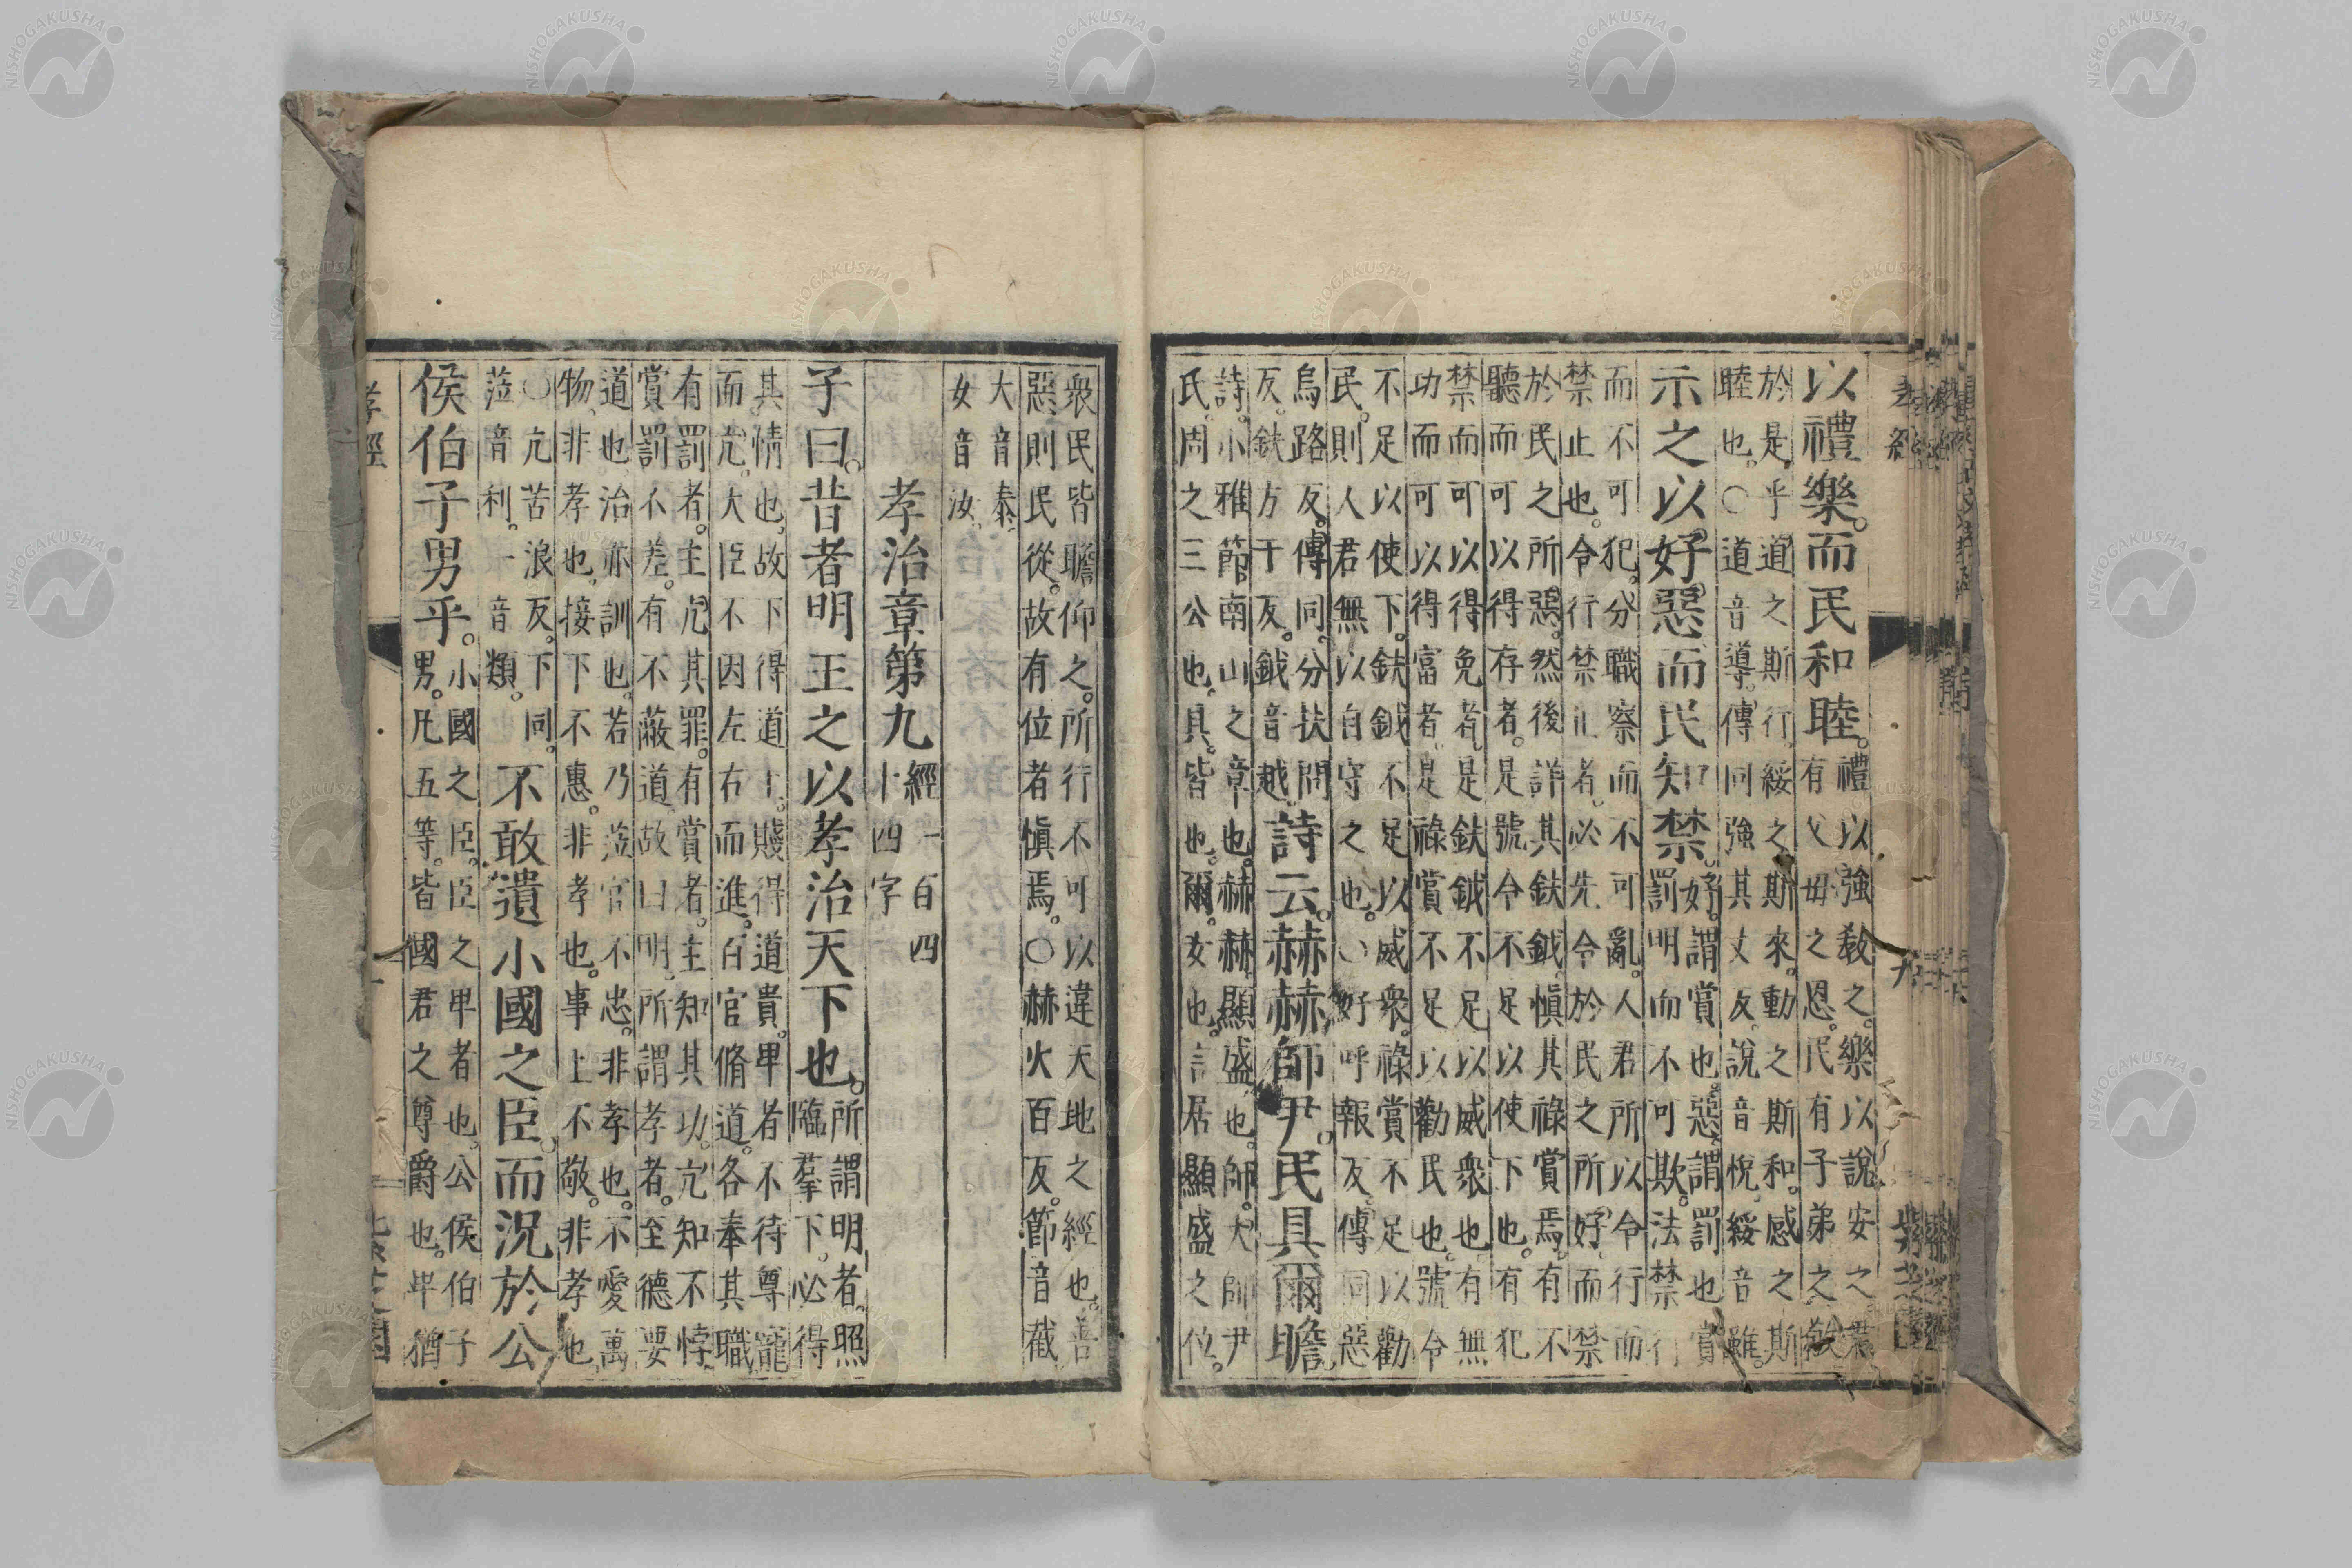 以禮樂。而民和睦。禮以強敎之。樂以說安之
有父母之恩。民有子弟之敬
於是乎道之斯行。綏之斯來。動之斯和。感之斯
睦也。○道音導。傳同強其丈反。說音悅。綏音雖。
示之以好惡。而民知禁。好。謂賞也。惡。謂罰也。賞
罰明而不可欺。法禁行
而不可犯。分職察而不可亂。人君所以令行而
禁止也。令行禁止者。必先令於民之所好。而禁
於民之所惡。然後詳其鈇鉞。慎其祿賞焉。有不
聽而可以得存者。是號令不足以使下也。有犯
禁而可以得免者。是鈇鉞不足以威衆也。有無
功而可以得富者。是祿賞不足以勸民也。號令
不足以使下。鈇鉞不足以威衆。祿賞不足以勸
民。則人君無以自守之也。○好呼報反。傳同惡
烏路反。傳同。分扶問
反。鈇方于反。鉞音越。詩云。赫赫師尹。民具爾瞻。
詩。小雅節南山之章也。赫赫顯盛也。師。大師尹
氏。周之三公也。具。皆也。爾。女也。言居顯盛之位。
衆民皆瞻仰之。所行不可以違天地之經也。善
惡則民從。故有位者慎焉。○赫火百反。節音截
大音泰。
女音汝。
孝治章第九 經一百四
十四字
子曰。昔者明王之以孝治天下也。所謂明者。照
臨羣下。必得
其情也。故下得道上。賤得道貴。卑者不待尊寵
而亢。大臣不因左右而進。百官脩道。各奉其職
有罰者。主亢其罪。有賞者。主知其功。亢知不悖
賞罰不差。有不蔽道。故曰明。所謂孝者。至德要
道也。治亦訓也。若乃涖官不忠。非孝也。不愛萬
物。非孝也。接下不惠。非孝也。事上不敬。非孝也。
○亢苦浪反。下同。
涖音利。一音類。不敢遺小國之臣。而況於公
侯伯子男乎。小國之臣。臣之卑者也。公侯伯子
男。凡五等。皆國君之尊爵也。卑猶
孝經
NISHOGAKUSHA